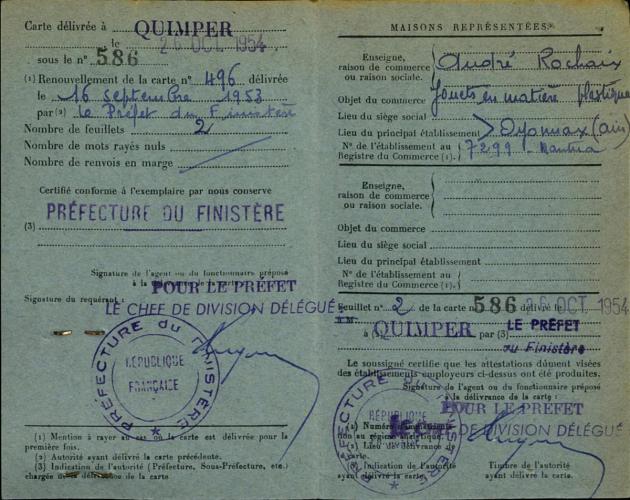 Carte délivrée à QUIMPER
le 26 OCT. 1954
sous le n° 586
(1) Renouvellement de la carte n° 496 délivrée
le 16 septembre 1953
par (2) le Préfet du Finistère
Nombre de feuillets 2
Nombre de mots rayés nuls
Nombre de renvois en marge
Certifié conforme à l'exemplaire par nous conservé
PRÉFECTURE DU FINISTÈRE
(3)
Signature de l'agent ou du fonctionnaire préposé
à la
POUR LE PRÉFET
Signature du requérant :
LE CHEF DE DIVISION DÉLÉGUÉ
PRÉFECTURE du FINISTÈRE
RÉPUBLIQUE
FRANÇAISE
(1) Mention à rayer au cas où la carte est délivrée pour la
première fois.
(2) Autorité ayant délivré la carte précédente.
(3) Indication de l'autorité (Préfecture, Sous-Préfecture, etc.)
chargée de la délivrance de la carte
MAISONS REPRÉSENTÉES
Enseigne,
raison de commerce
ou raison sociale.
André Rochaix
Objet du commerce Jouets en matière plastique
Lieu du siège social
Lieu du principal établissement Oyonnax (Ain)
N° de l'établissement au
Registre du Commerce (1).
7299 - Nantua
Enseigne,
raison de commerce
ou raison sociale.
Objet du commerce
Lieu du siège social
Lieu du principal établissement
N° de l'établissement au
Registre du Commerce (1).
Feuillet n° 2 de la carte n° 586 délivré le 26 OCT. 1954
à (2) QUIMPER par (3) LE PRÉFET
du Finistère
Le soussigné certifie que les attestations dûment visées
des établissements employeurs ci-dessus ont été produites.
Signature de l'agent ou du fonctionnaire préposé
à la délivrance de la carte :
POUR LE PRÉFET
LE CHEF DE DIVISION DÉLÉGUÉ
PRÉFECTURE du FINISTÈRE
RÉPUBLIQUE
(1) Numéro
non au registre analytique.
(2) Lieu de délivrance de
la carte.
(3) Indication de l'autorité
ayant délivré la carte.
Timbre de l'autorité
ayant délivré la carte.